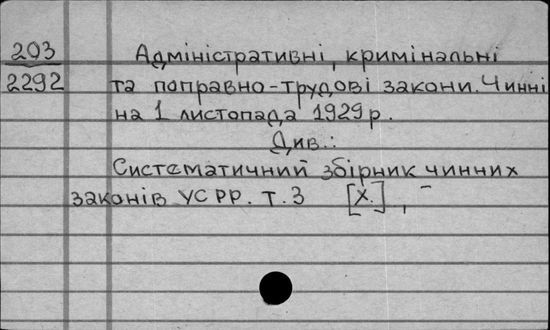 203 Адміністративні, кримінальні
2292 та поправно-трудові закони. Чинні
на 1 листопада 1929 р.
Див.:
Систематичний збірник чинних
законів УСРР. т. 3 [Х.], -